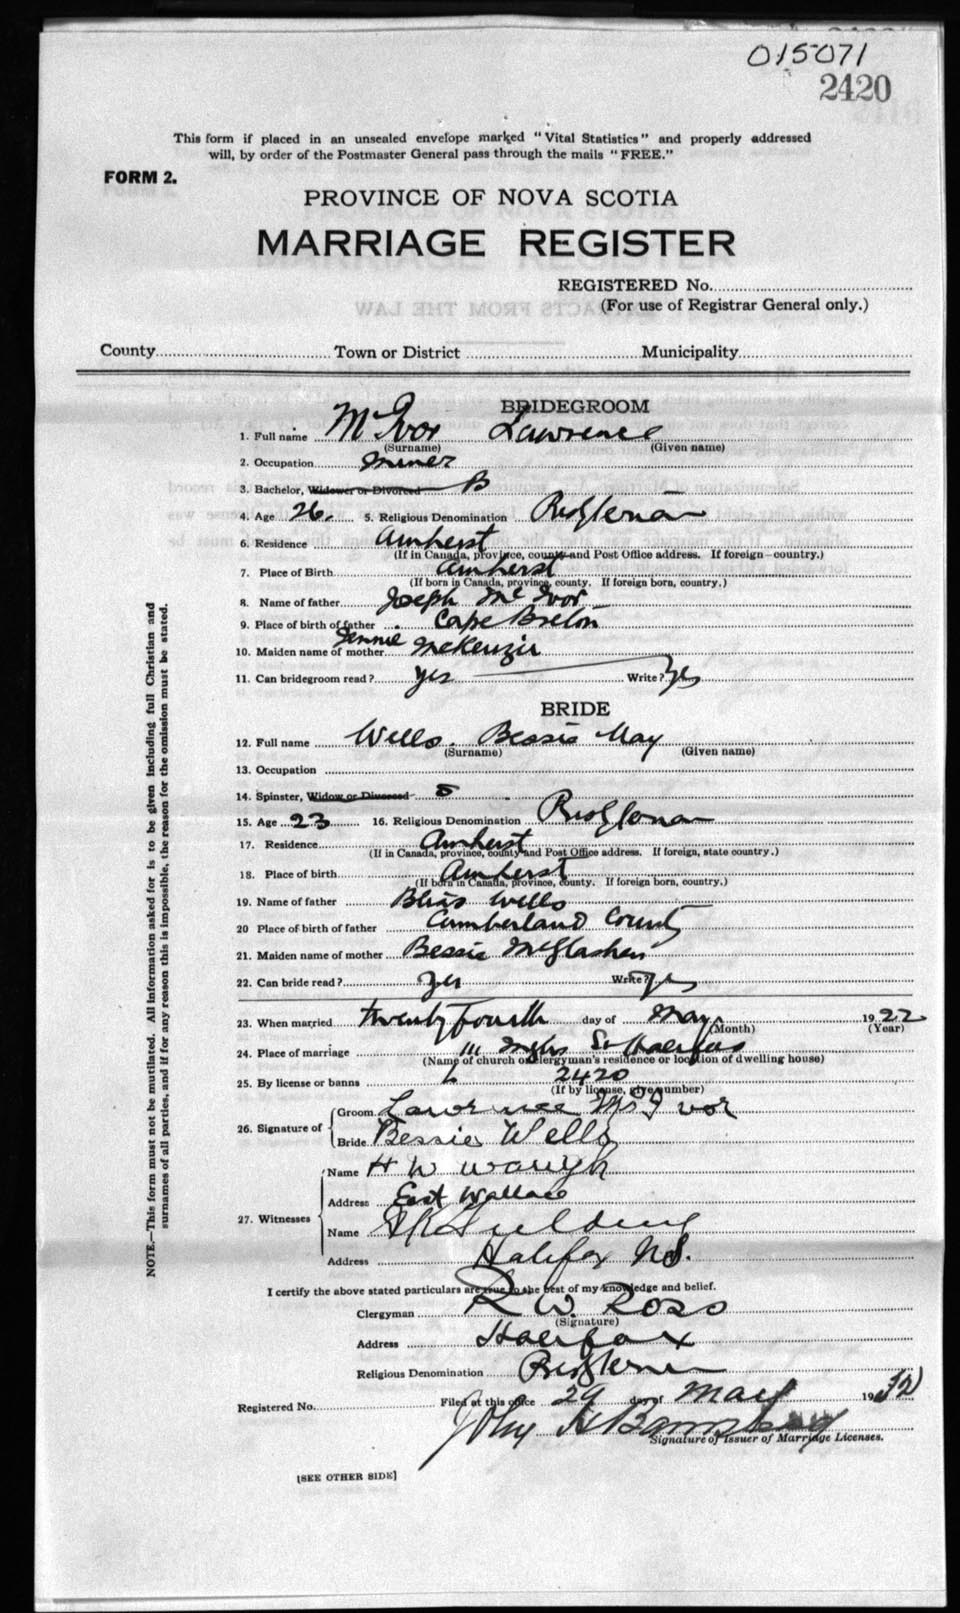 015071
2420
This form if placed in an unsealed envelope marked "Vital Statistics" and properly addressed
will, by order of the Postmaster General pass through the mails "FREE."
FORM 2.
PROVINCE OF NOVA SCOTIA
MARRIAGE REGISTER
REGISTERED No.
(For use of Registrar General only.)
County Town or District Municipality
BRIDEGROOM
1. Full name McIvor Lawrence
(Surname) (Given name)
2. Occupation miner
3. Bachelor, Widower or Divorced B
4. Age 26. 5. Religious Denomination
6. Residence Amherst
(If in Canada, province, county and Post Office address. If foreign country.)
7. Place of Birth Amherst
(If born in Canada, province, county. If foreign born, country.)
8. Name of father Joseph McIvor
9. Place of birth of father Cape Breton
10. Maiden name of mother Jennie McKenzie
11. Can bridegroom read? yes Write? yes
BRIDE
12. Full name Wells. Bessie May
(Surname) (Given name)
13. Occupation
14. Spinster, Widow or Divorced S
15. Age 23 16. Religious Denomination
17. Residence Amherst
(If in Canada, province, county and Post Office address. If foreign, state country.)
18. Place of birth Amherst
(If born in Canada, province, county. If foreign born, country.)
19. Name of father Wells
20 Place of birth of father Cumberland County
21. Maiden name of mother Bessie McGlashen
22. Can bride read? yes Write? yes
23. When married twenty fourth day of May 1922
(Month) (Year)
24. Place of marriage St Halifax
(Name of church or clergyman's residence or location of dwelling house)
25. By license or banns L 2420
(If by license, give number)
26. Signature of Groom Lawrence McIvor
Bride Bessie Wells
27. Witnesses Name H W Waugh
Address East Wallace
Name
Address Halifax N.S.
I certify the above stated particulars are true to the best of my knowledge and belief.
Clergyman R W Ross
(Signature)
Address Halifax
Religious Denomination
Registered No. Filed at this office 29 day of May 19
John
Signature of Issuer of Marriage Licenses.
[SEE OTHER SIDE]
NOTE.—This form must not be mutilated. All information asked for is to be given including full Christian and
surnames of all parties, and if for any reason this is impossible, the reason for the omission must be stated.